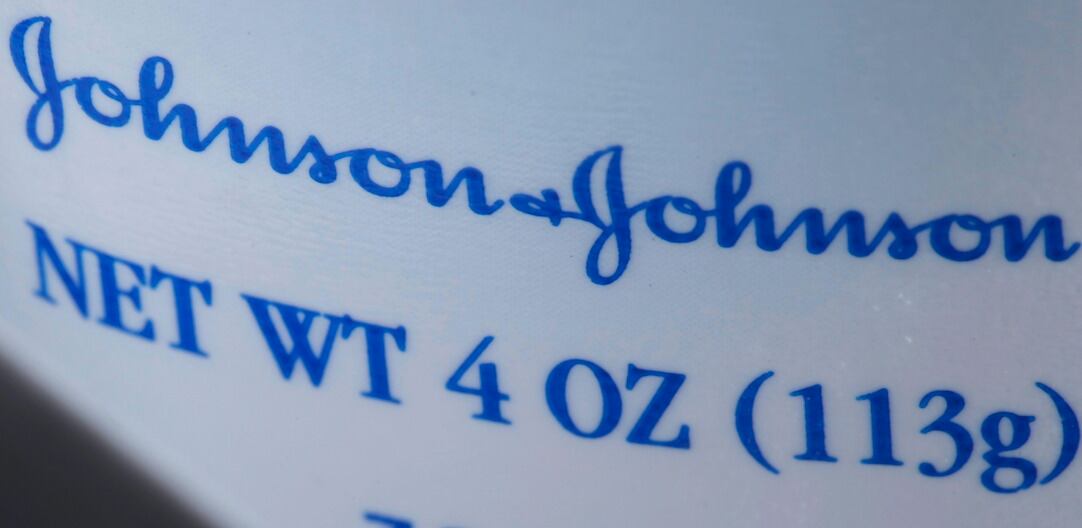 Johnson & Johnson
NET WT 4 OZ (113g)